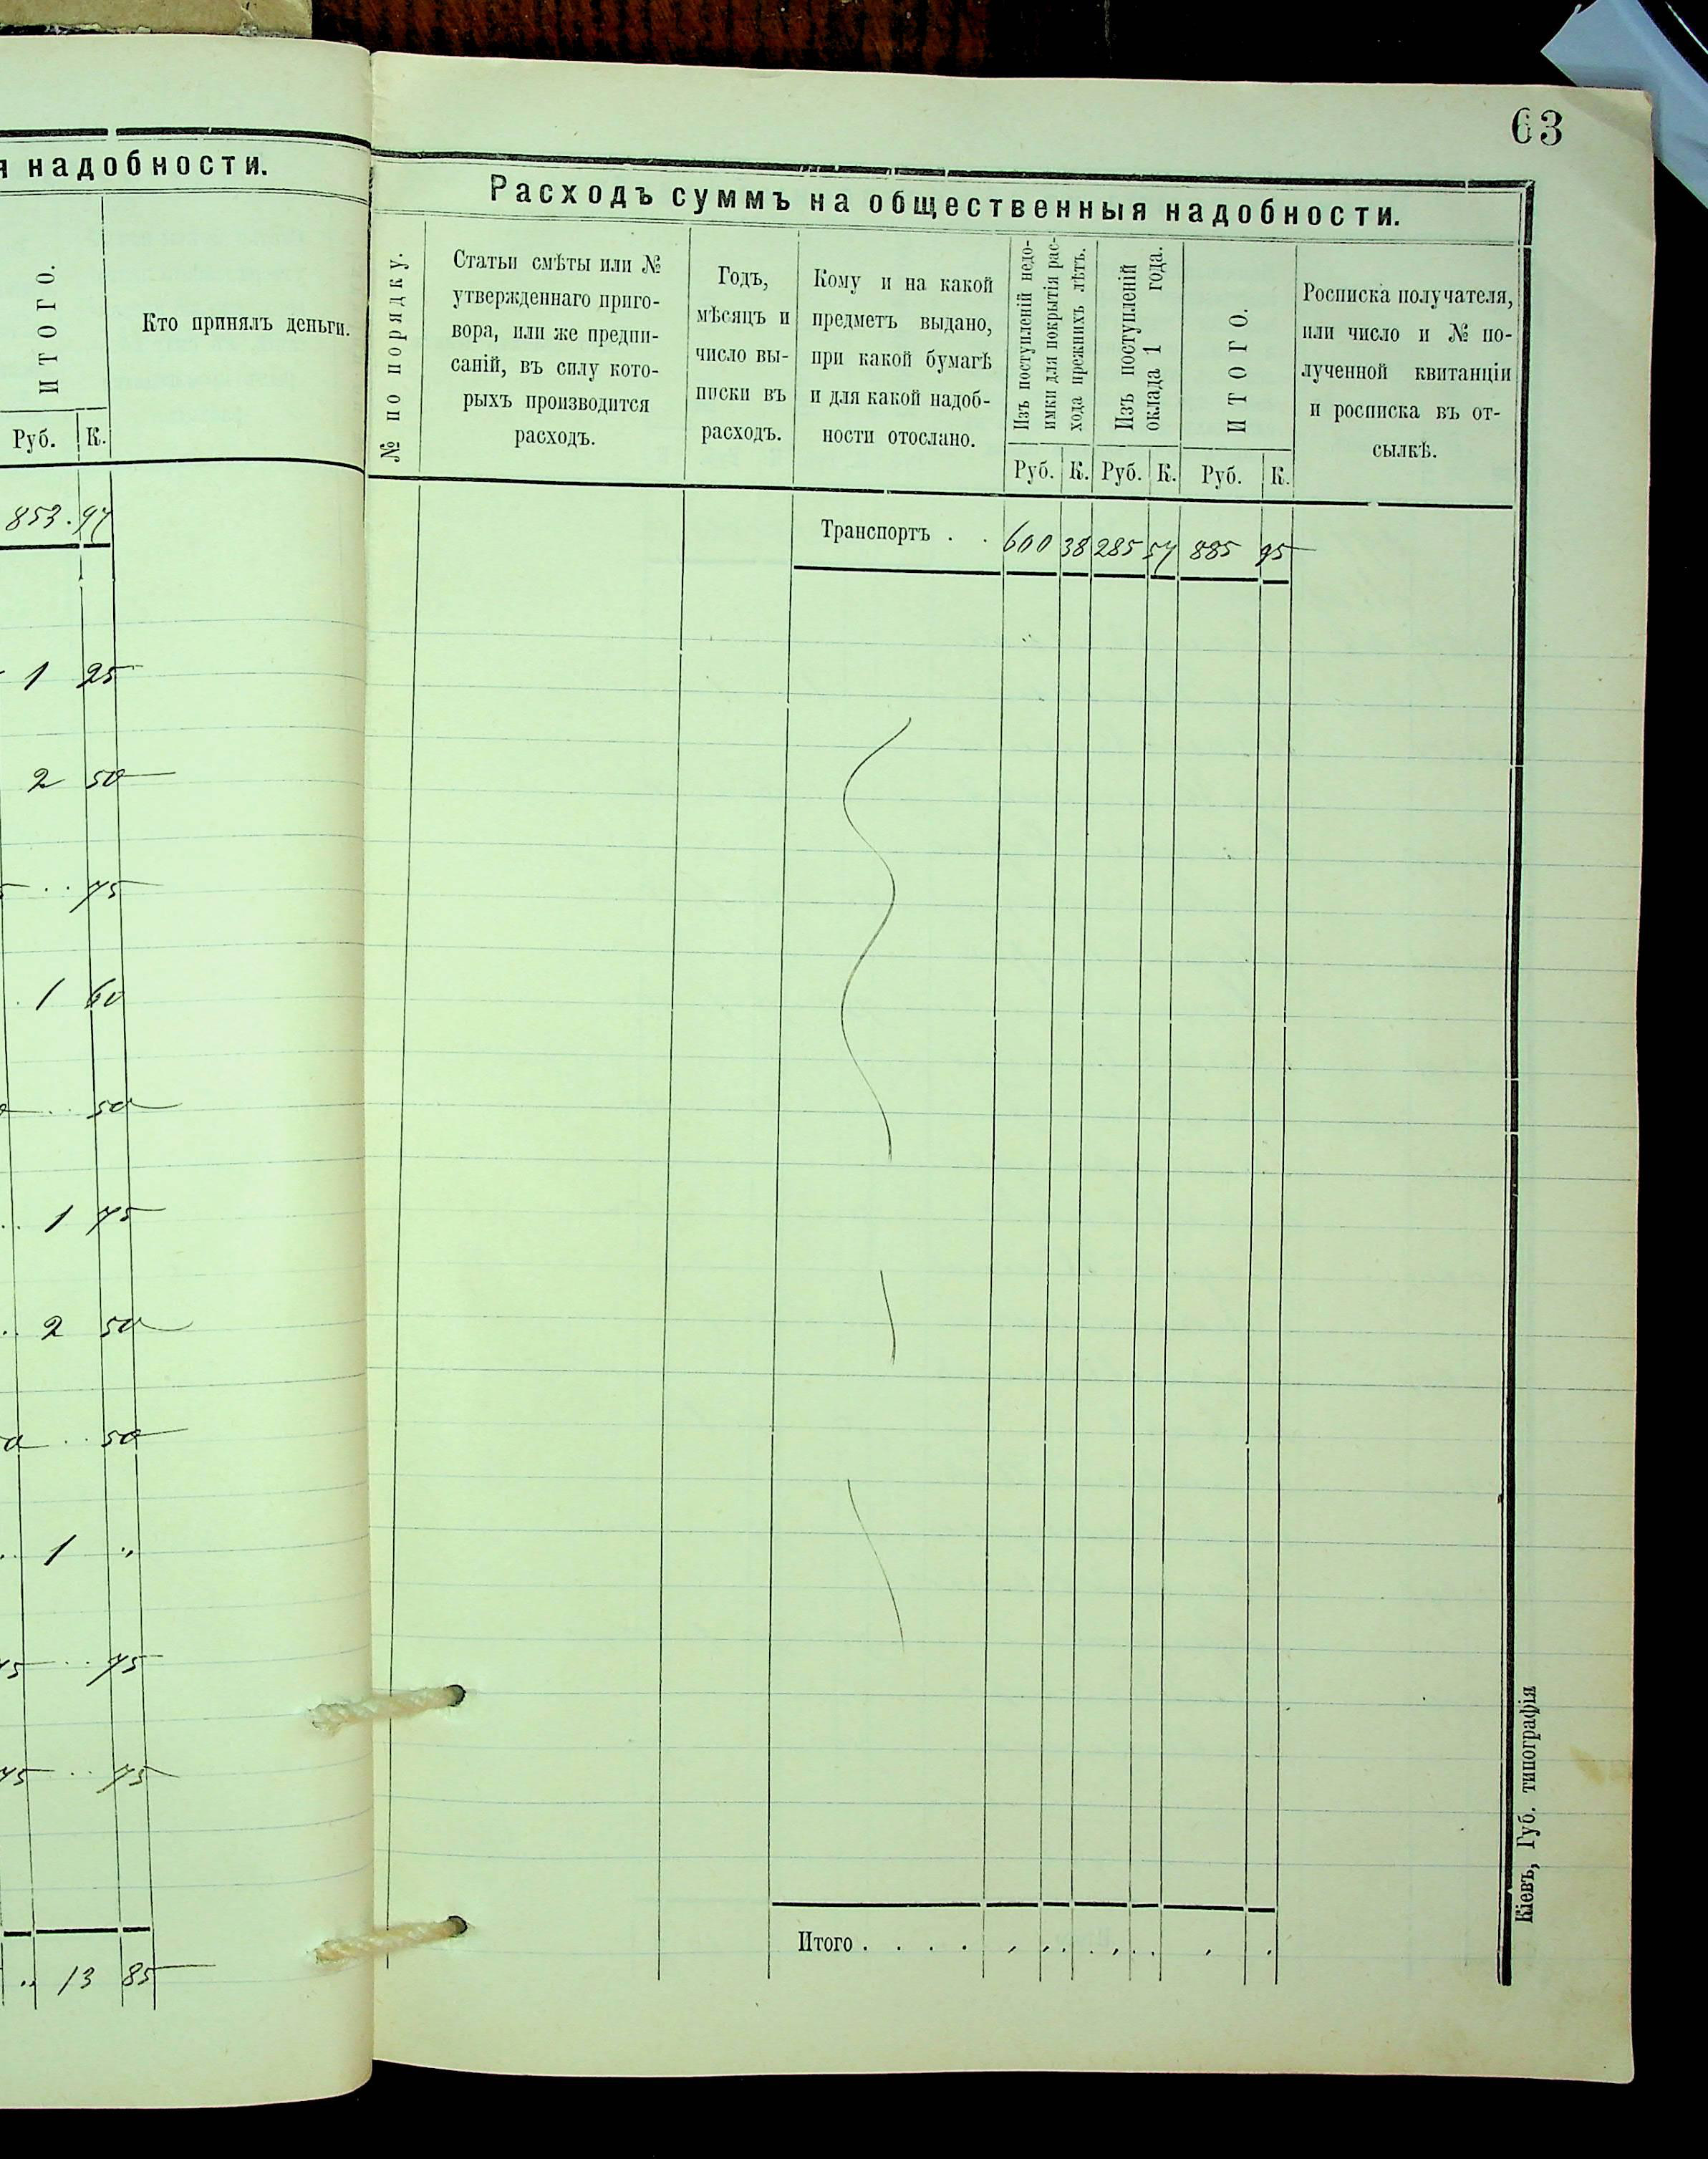 63
я надобности.
ИТОГО.
Кто принялъ деньги.
Руб. К.
853. 97
1 25
2 50
75
1 60
50
1 75
2 50
50
1 "
75
75
13 85
Расходъ суммъ на общественныя надобности.
№ по порядку.
Статьи смѣты или №
утвержденнаго приго-
вора, или же предпи-
саній, въ силу кото-
рыхъ производится
расходъ.
Годъ,
мѣсяцъ и
число вы-
писки въ
расходъ.
Кому и на какой
предметъ выдано,
при какой бумагѣ
и для какой надоб-
ности отослано.
Изъ поступленій недо-
имки для покрытія рас-
хода прежнихъ лѣтъ.
Изъ поступленій
оклада 1 года.
ИТОГО.
Росписка получателя,
или число и № по-
лученной квитанціи
и росписка въ от-
сылкѣ.
Руб. К. Руб. К. Руб. К.
Транспортъ . . 600 38 285 57 885 95
Итого . . . .
Кіевъ, Губ. типографія